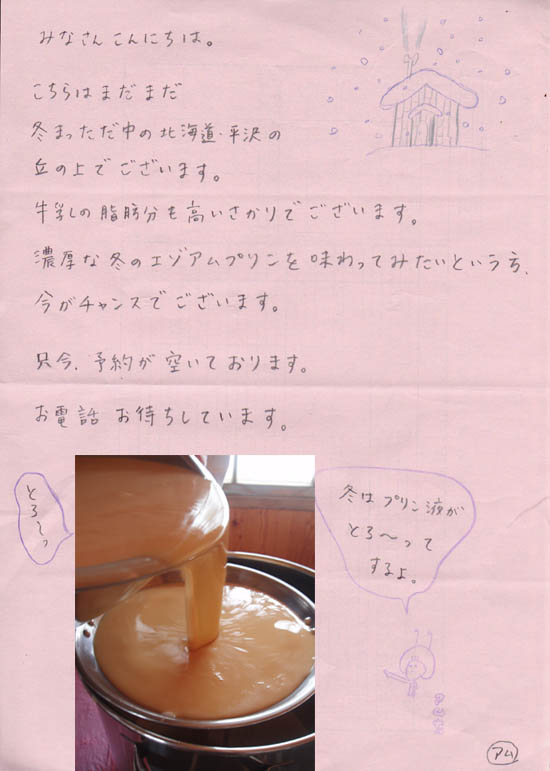 みなさんこんにちは。
こちらはまだまだ
冬まっただ中の北海道・平沢の
丘の上でございます。
牛乳の脂肪分も高いさかりでございます。
濃厚な冬のエゾアムプリンを味わってみたいという方、
今がチャンスでございます。
只今、予約が空いております。
お電話お待ちしています。
とろ〜っ
冬はプリン液が
とろ〜って
するよ。
アム